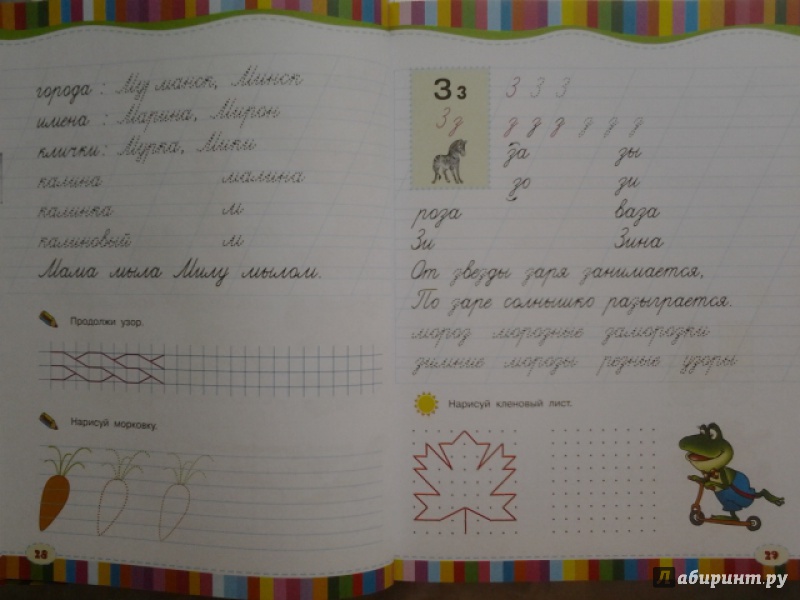 города : Мурманск, Минск
имена : Марина, Мирон
клички: Мурка, Мики
калина малина
калинка м
калиновый м
Мама мыла Милу мылом.
Продолжи узор.
Нарисуй морковку.
28
З з З З З
З з з з з з з з
за зы
зо зи
роза ваза
Зи Зина
От звезды заря занимается,
По заре солнышко разыграется.
мороз морозные заморозки
зимние морозы резные узоры
Нарисуй кленовый лист.
29
Лабиринт.ру